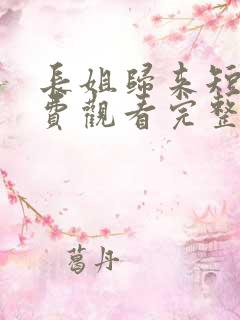 長姐歸來短
費觀看完整
葛丹